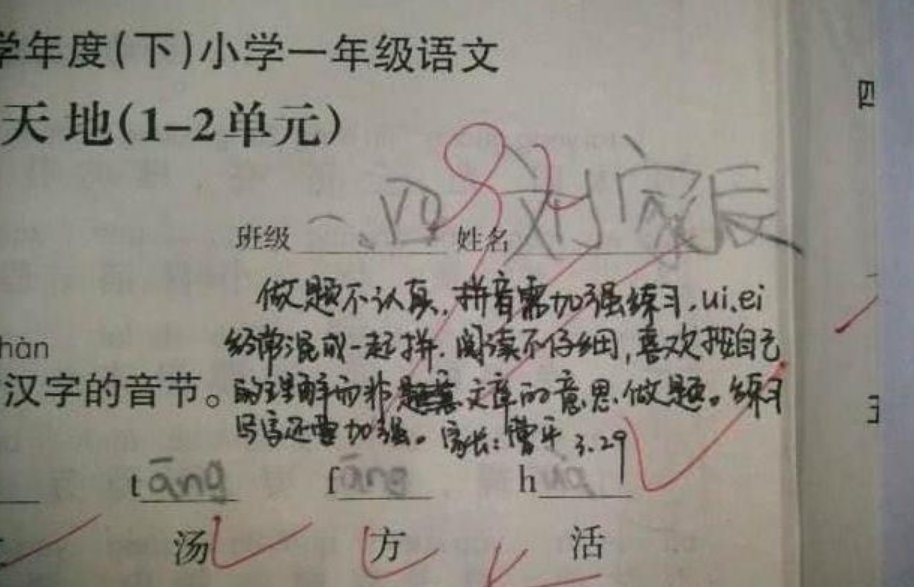 学年度(下)小学一年级语文
天地(1-2单元)
班级 一.四 姓名 刘家辰
做题不认真，拼音需加强练习，ui.ei
经常混成一起拼，阅读不仔细，喜欢按自己
的理解而非文章的意思做题。练习
写字还需加强。家长：曹平 3.29
hàn
汉字的音节。
tāng fāng h
汤 方 活
四
五